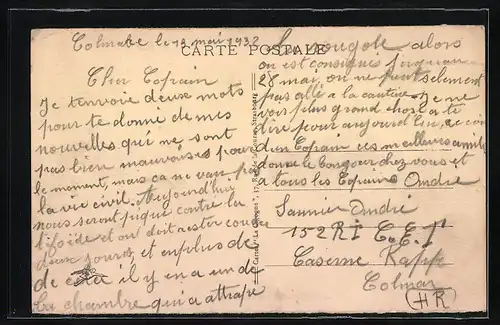 Colmar le 18 mai 1932
CARTE POSTALE
Cher Copain
Je t'envoie deux mots
pour te donné de mes
nouvelles qui ne sont
pas bien mauvaises pour
le moment, mais ca ne vau pas
la vie civil. Aujourdhui
nous seront piqué contre la
tifoïde et on doit aster couché
deux jours et en plus de
de cela il y en a un de
la chambre qui a attrapé
alors
on est consignés jusquau
28 mai, on ne peut selement
pas allé a la cantine je ne
vois plus grand chose a te
dire pour aujourdhui,
d'un Copain ces meilleures amitiés
donne le bonjour chez vous et
a tous les Copains André
Saunier André
152 RI C.E.I
Caserne Rapp
Colmar
(HR)